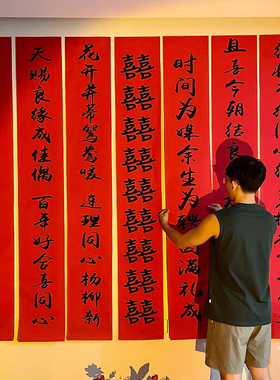 且喜今朝结良
时间为媒余生为聘 满礼成
囍囍囍囍囍囍囍囍囍
花开并蒂鸳鸯暖 连理同心杨柳新
天赐良缘成佳偶 百年好合喜同心